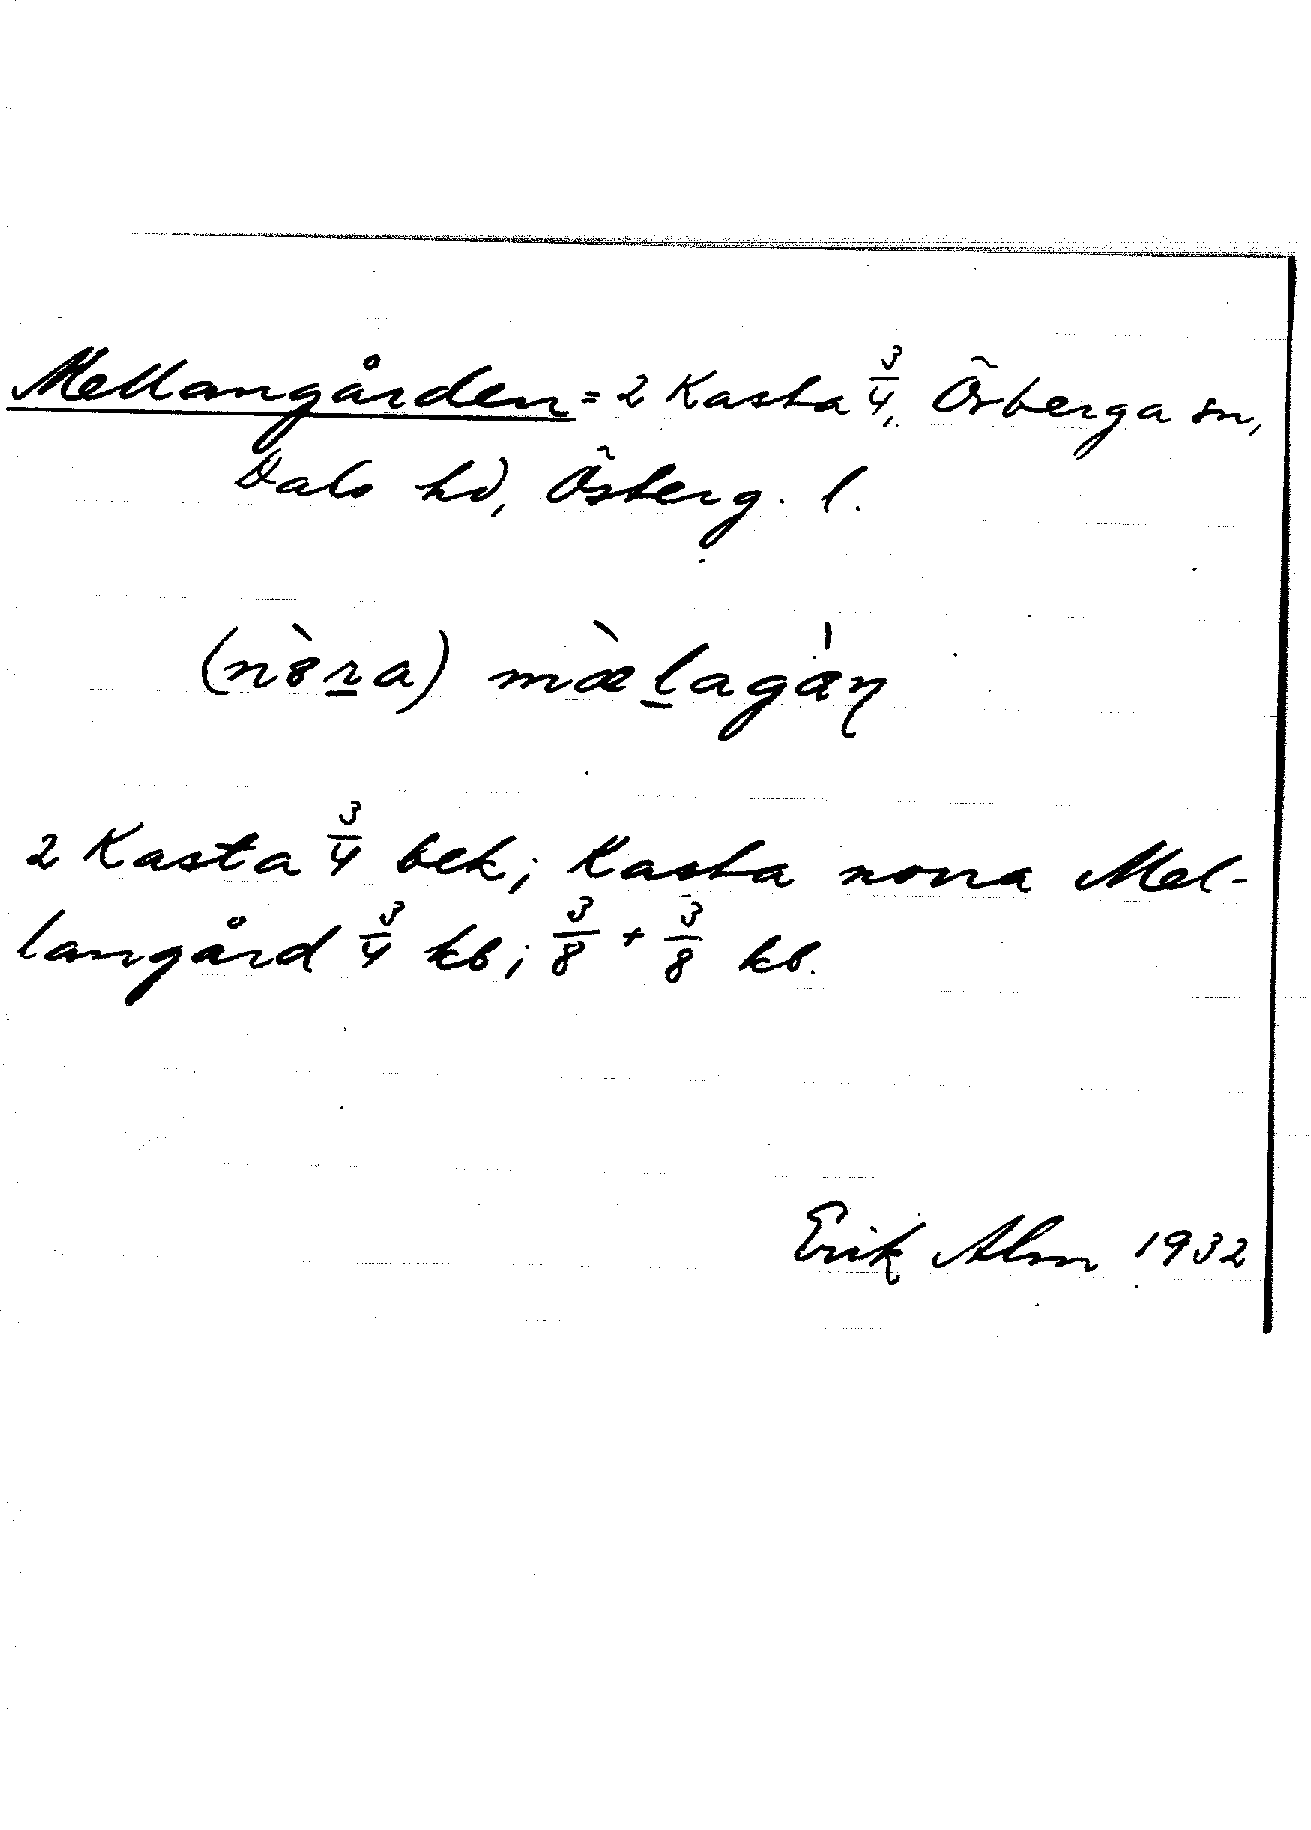 Mellangården = 2 Kasta 3/4, Örberga sn,
Dals hd, Österg. l.
(nò̀ra) mæ̀laga̍n
2 Kasta 3/4 bek; Kasta norra Mel-
langård 3/4 kb; 3/8 + 3/8 kb.
Erik Alm 1932